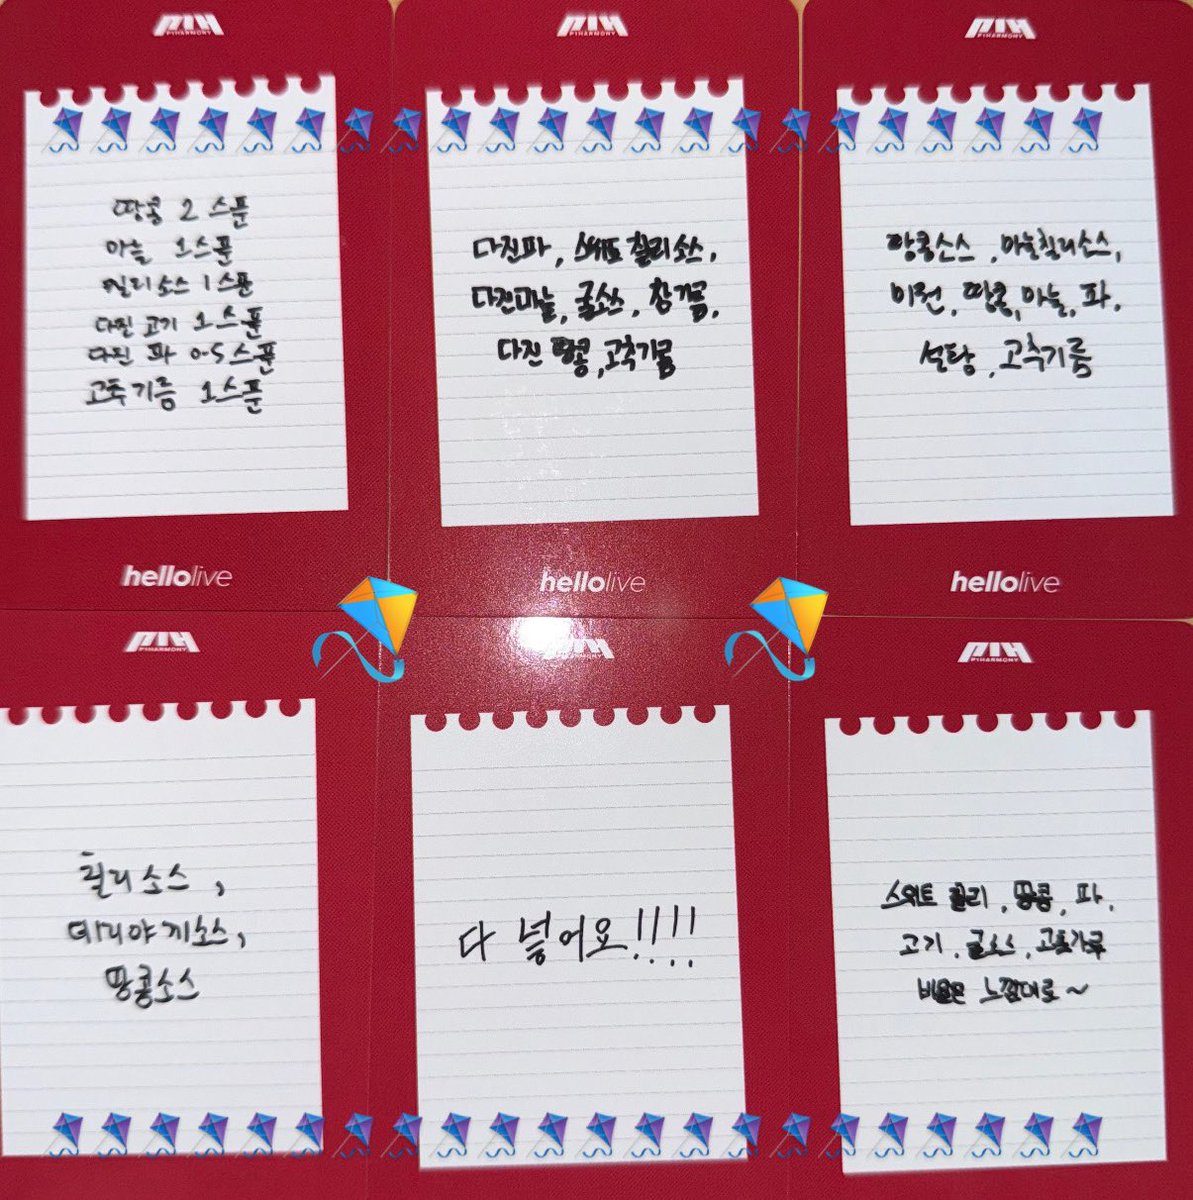 P1H
P1HARMONY
땅콩 2 스푼
마늘 1스푼
칠리소스 1스푼
다진 고기 1스푼
다진 파 0.5스푼
고추기름 1스푼
hellolive
P1H
P1HARMONY
다진파, 스위트 칠리소스,
다진마늘, 굴소스, 참기름,
다진 땅콩, 고추기름
hellolive
P1H
P1HARMONY
땅콩소스, 마늘칠리소스,
이런, 땅콩, 마늘, 파,
설탕, 고추기름
hellolive
P1H
P1HARMONY
칠리소스,
데리야끼소스,
땅콩소스
P1HARMONY
다 넣어요!!!!
P1H
P1HARMONY
스위트 칠리, 땅콩, 파,
고기, 굴소스, 고춧가루
비율은 느낌대로~